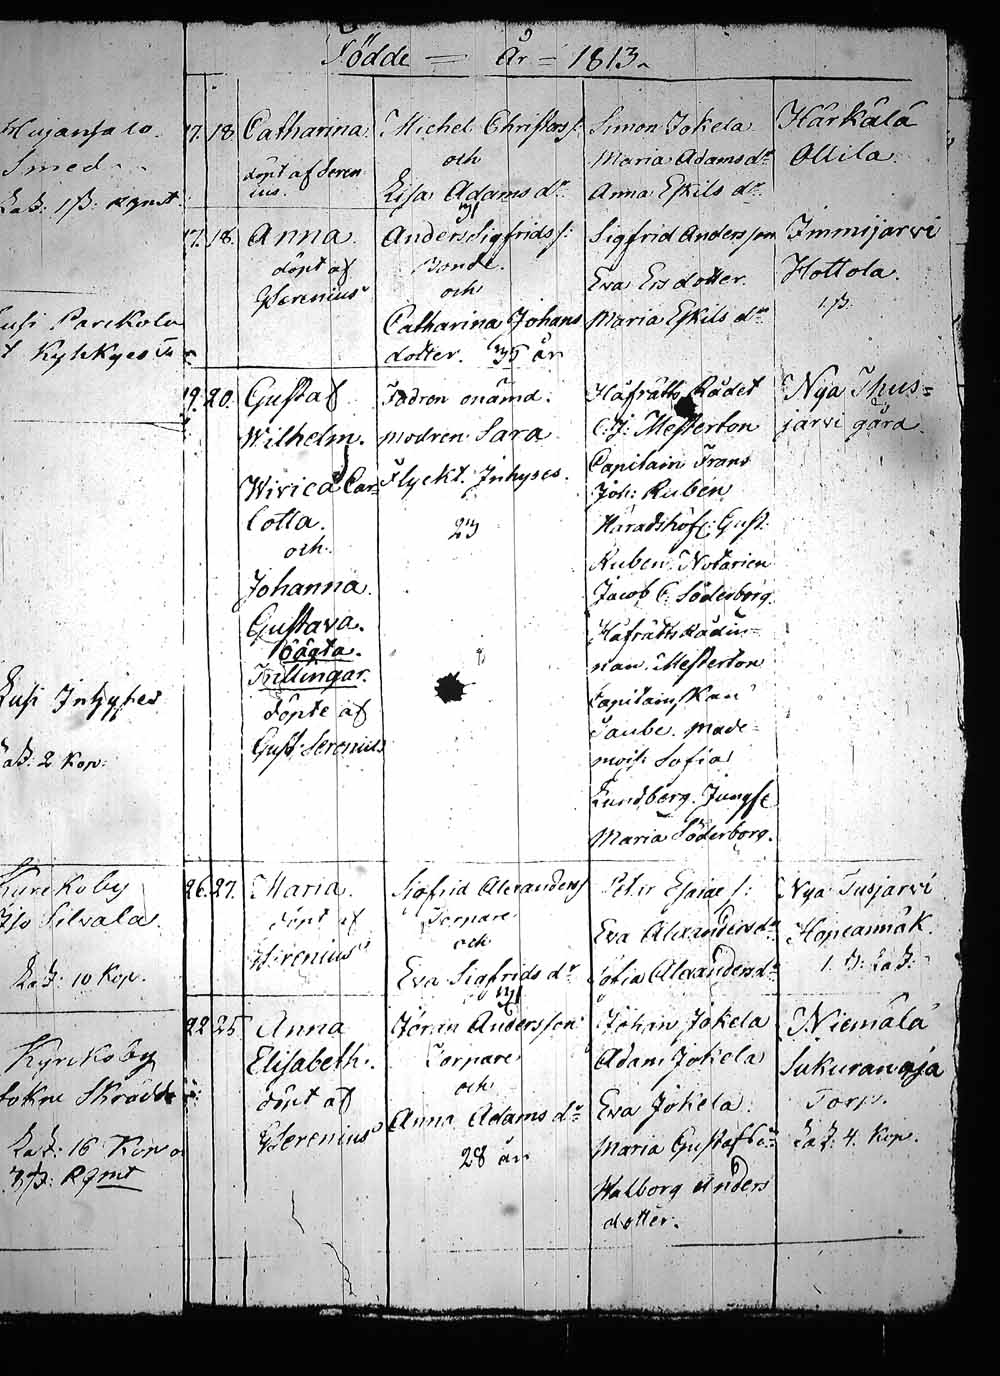 Födde = År = 1813
Smed
17. 18. Catharina
döpt af Seren
ius.
Michel Christers s:
och
Lisa Adams dr
31
Simon Jokela
Maria Adamsdr
Anna Eskils dr
Härkälä
Ollila
17. 18. Anna
döpt af
GSerenius
Anders Sigfrids s:
Bonde.
och
Catharina Johans
dotter. 35 år
Sigfrid Andersson
Eva Ersdotter.
Maria Eskils dr
Immijarvi
Hottola.
1 ß.
Parikola
19. 20. Gustaf
Wilhelm.
Wivica Car=
lotta.
och
Johanna
Gustava.
oägta.
Trillingar.
döpte af
Gust: Serenius
Fadren onämd.
modren Sara
Flyckt. Inhyses.
23
Håfrätts Rådet
C. J: Mesterton
Capitain Frans
Joh: Ruben
Häradshöfd: Gust.
Ruben. Notarien
Jacob C. Söderborg.
Håfrätts Rådin=
nan Mesterton
Capitainskan
Taube. Made=
mois: Sofia
Lundberg. Jungfr
Maria Söderborg.
Nya Thus=
järvi gård.
Lusi Inhyses
Kaz: 2 Kop:
26. 27. Maria.
döpt af
GSerenius
Sigfrid Alexanders s
Torpare
och
Eva Sigfrids dr
31
Petter Esaiæ s:
Eva Alexandersdr
Sofia Alexandersdr
Nya Tusjarvi
Hopeannäk.
Kyrckoby
Silvala.
Kaz: 10 Kop.
22 25 Anna
Elisabeth.
döpt af
GSerenius
Jöran Andersson
Torpare
och
Anna Adams dr
28 år
Johan Jokela
Adam Jokela
Eva Jokela.
Maria Gustafs dr
Walborg Anders
dotter.
Niemälä
Sukuranoja
Torp.
Kaz: 4. Kop.
Kyrckoby
Sokne Skrädd
Kaz: 16 Kop